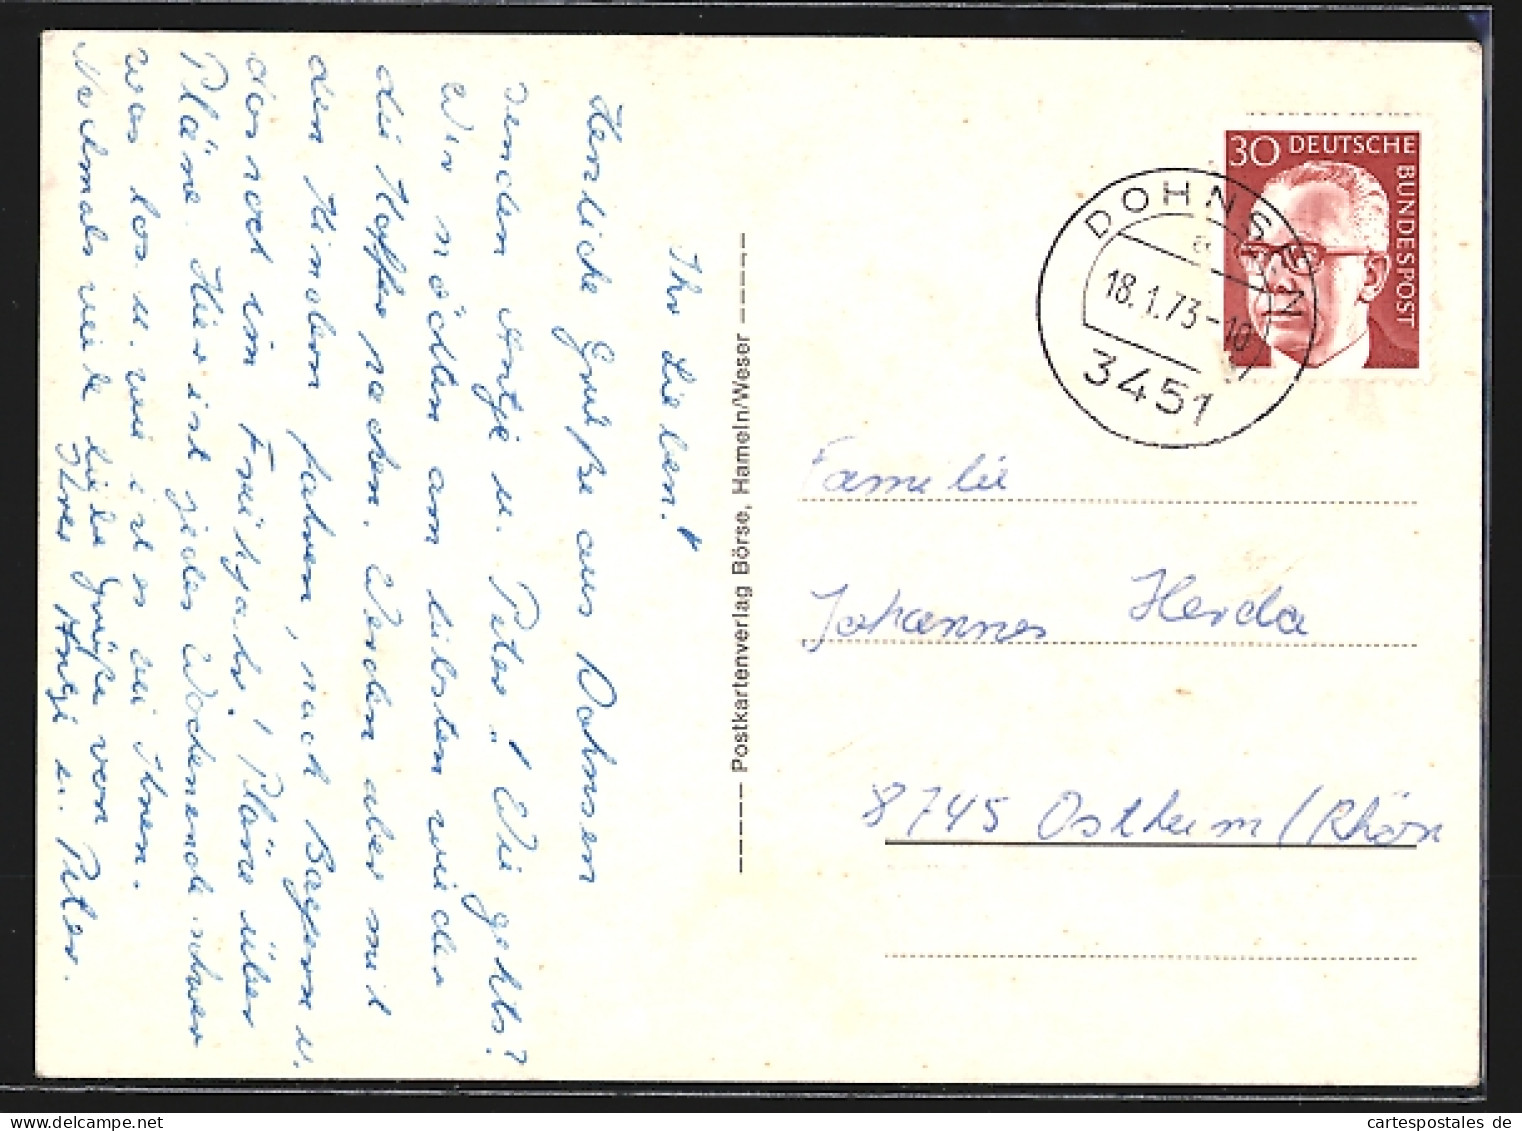 Ihr Lieben!
Herzliche Grüße aus Dohnsen
senden Antje u. Peter! Wie gehts?
Wir möchten am liebsten wieder
die Koffer packen. Werden aber mit
den Kindern fahren, nach Bayern u.
das noch im Frühjahr! Pläne über
Pläne. Hier ist jedes Wochenende schwer
was los u. wie ist es bei Ihnen.
Nochmals viele liebe Grüße von
Ihrer Antje u. Peter.
----- Postkartenverlag Börse, Hameln/Weser -----
30 DEUTSCHE
BUNDESPOST
DOHNSEN
a
18.1.73-10
3451
Familie
Johannes Herda
8745 Ostheim/Rhön
cartespostales.de
www.cartespostales.de